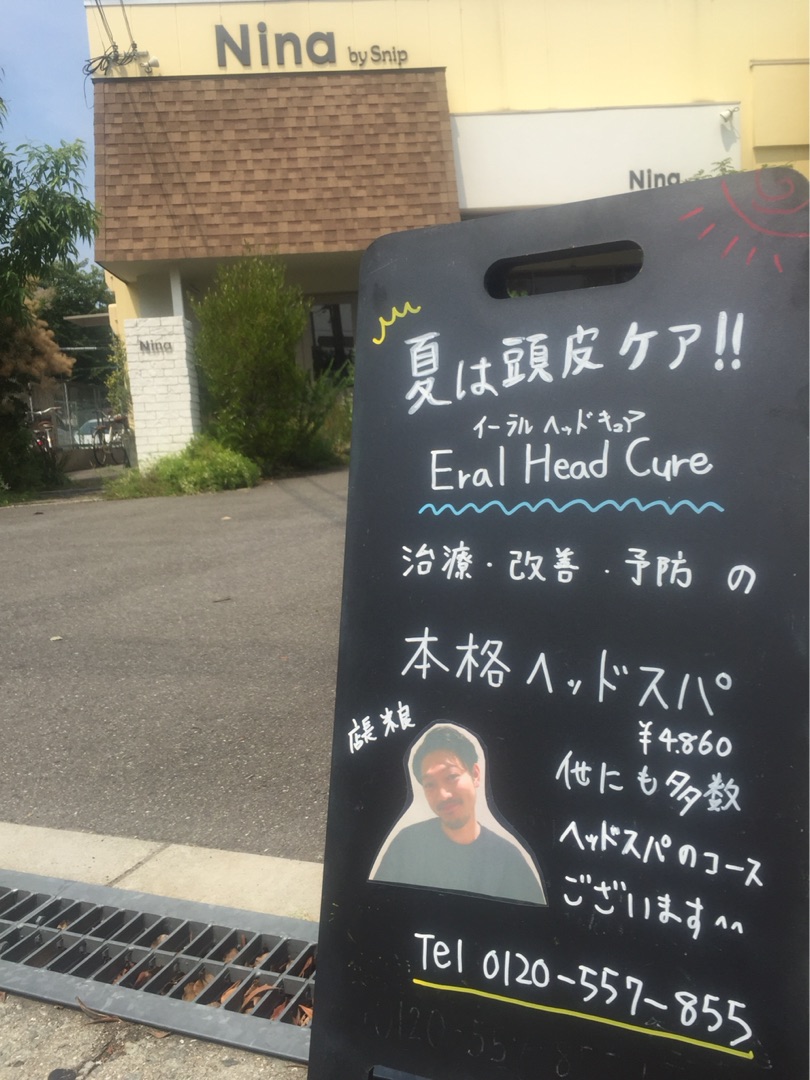 Nina by Snip
Nina
Nina
夏は頭皮ケア!!
イーラル ヘッドキュア
Eral Head Cure
治療・改善・予防 の
本格ヘッドスパ
¥4.860
店長 粮
他にも多数
ヘッドスパのコース
ございます^^
Tel 0120-557-855